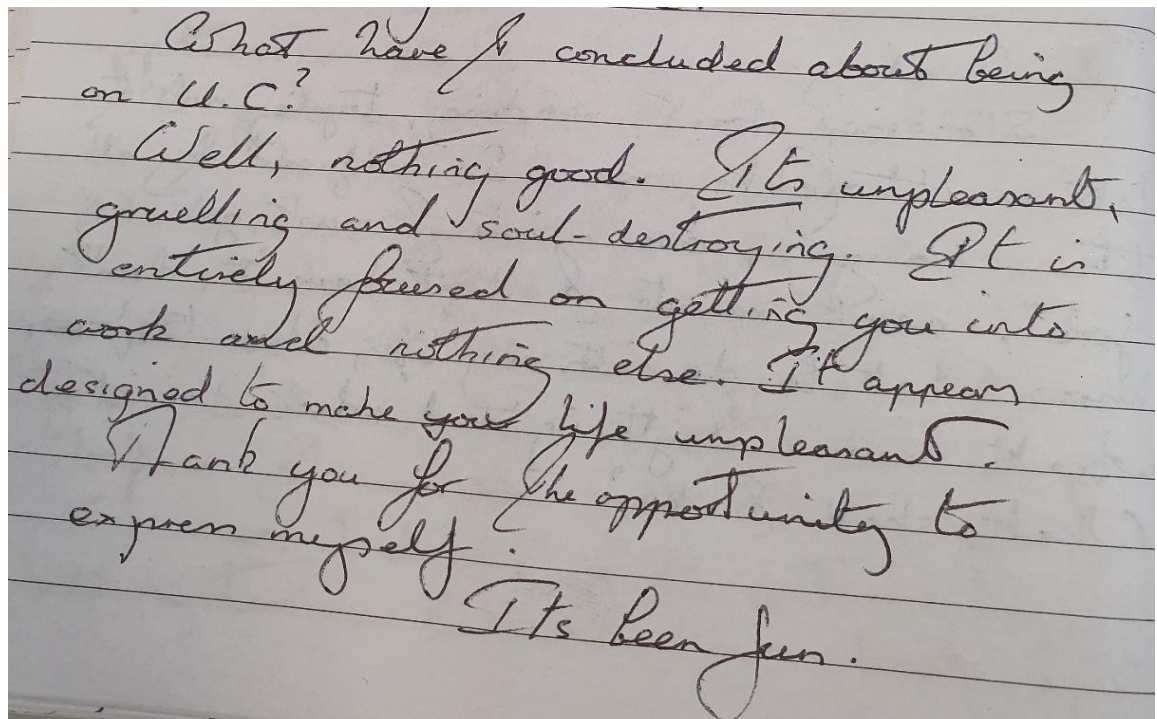 What have I concluded about being
on U.C?
Well, nothing good. Its unpleasant,
gruelling and soul-destroying. It is
entirely focused on getting you into
work and nothing else. It appears
designed to make your life unpleasant.
Thank you for the opportunity to
express myself.
Its been fun.